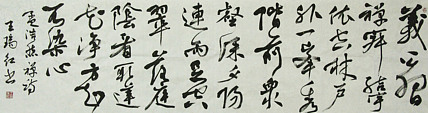 義公習
禅寂結宇
依空林户
外一峯秀
階前衆
壑深夕陽
連雨足空
翠落庭
陰看取蓮
花净方知
不染心
孟浩然禅诗